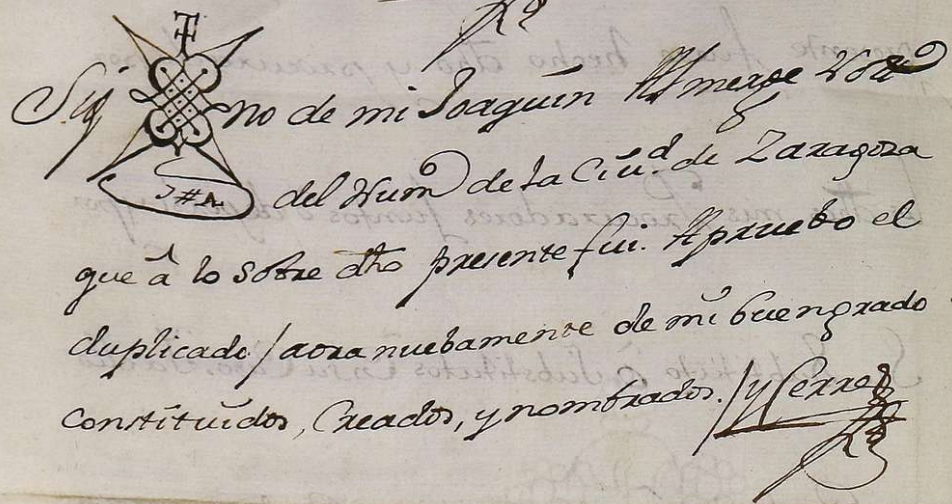 Sig no de mi Joaquin Almerge Not.º
del Num.º de la Ciu.d de Zaragoza
que â lo sobre dho presente fui. Apruebo el
duplicado / aora nuebamente de mi buen grado
constituidos, Creados, y nombrados. / y Cerre